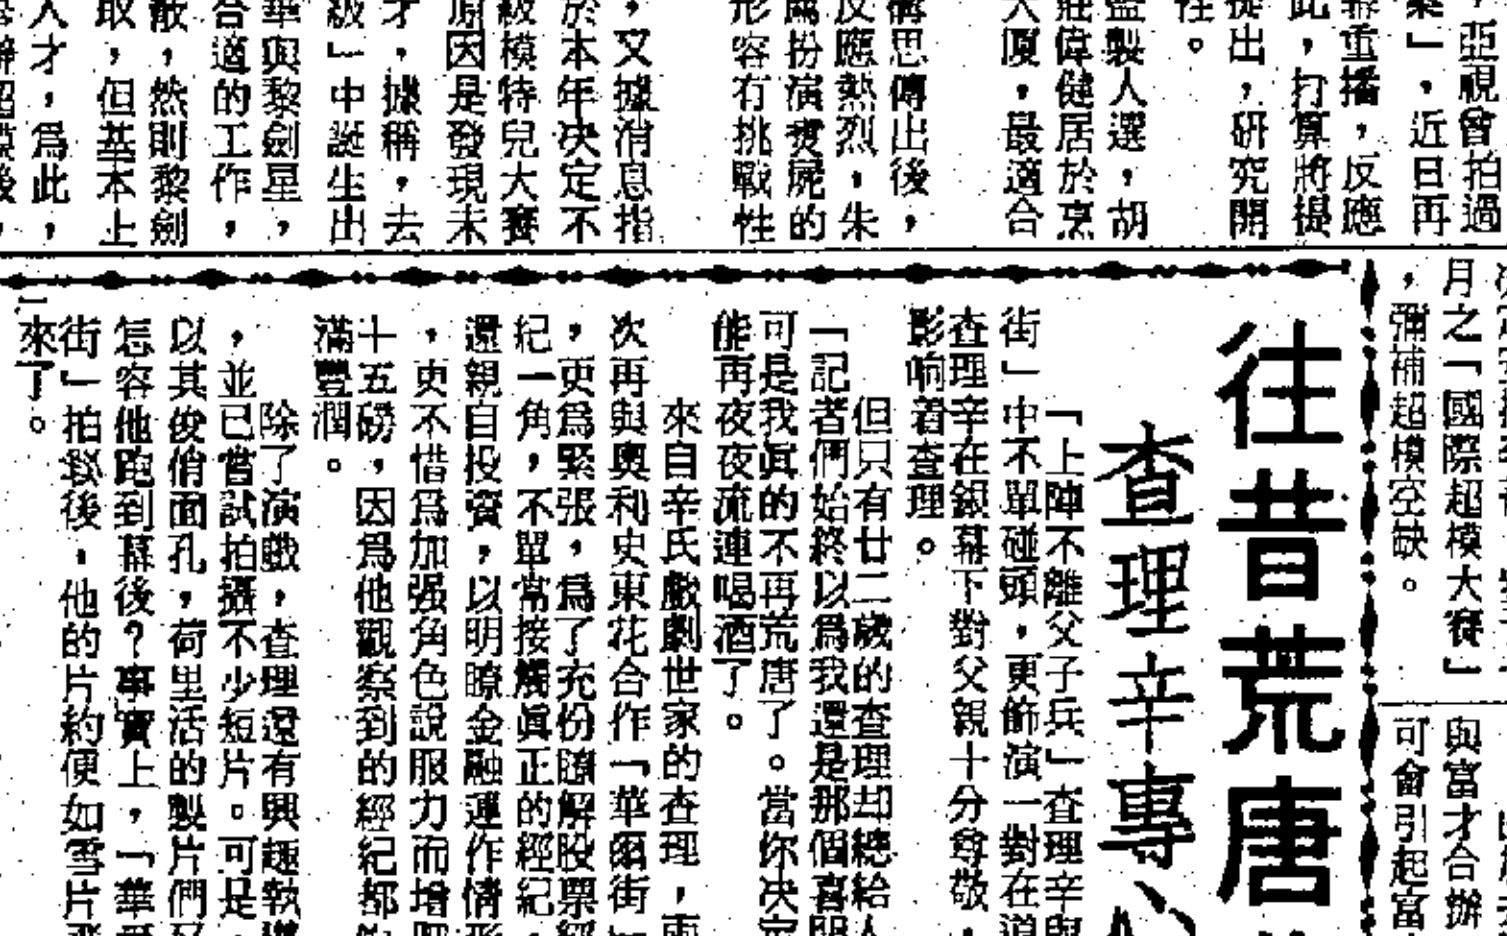 ，亞視曾拍過
」，近日再
重播，反應
此，打算將提
提出，研究開
性。
監製人選，胡
莊偉健居於烹
大厦，最適合
構思傳出後，
反應熱烈，朱
爲扮演喪屍的
形容有挑戰性
，又據消息指
於本年决定不
級模特兒大賽
原因是發現未
才，據稱，去
級」中誕生出
華與黎劍星，
合適的工作，
散，然則黎劍
取，但基本上
人才，爲此，
月之「國際超模大賽」
，彌補超模空缺。
與富才合辦
可會引起富
往昔荒唐
查理辛專心
「上陣不離父子兵」查理辛與
街」中不單碰頭，更飾演一對在道
查理辛在銀幕下對父親十分尊敬，
影响着查理。
但只有廿二歲的查理却總給人
「記者們始終以爲我還是那個喜
可是我眞的不再荒唐了。當你决定
能再夜夜流連喝酒了。
來自辛氏戲劇世家的查理，
次再與奧利史東花合作「華爾街
，更爲緊張，爲了充份瞭解股票經
紀一角，不單常接觸眞正的經紀，
還親自投資，以明瞭金融運作情形
，更不惜爲加强角色說服力而增
十五磅，因爲他觀察到的經紀都
滿豐潤。
除了演戲，查理還有興趣執
，並已嘗試拍攝不少短片。可是，
以其俊俏面孔，荷里活的製片們又
怎容他跑到幕後？事實上，「華
街」拍竣後，他的片約便如雪片
來了。